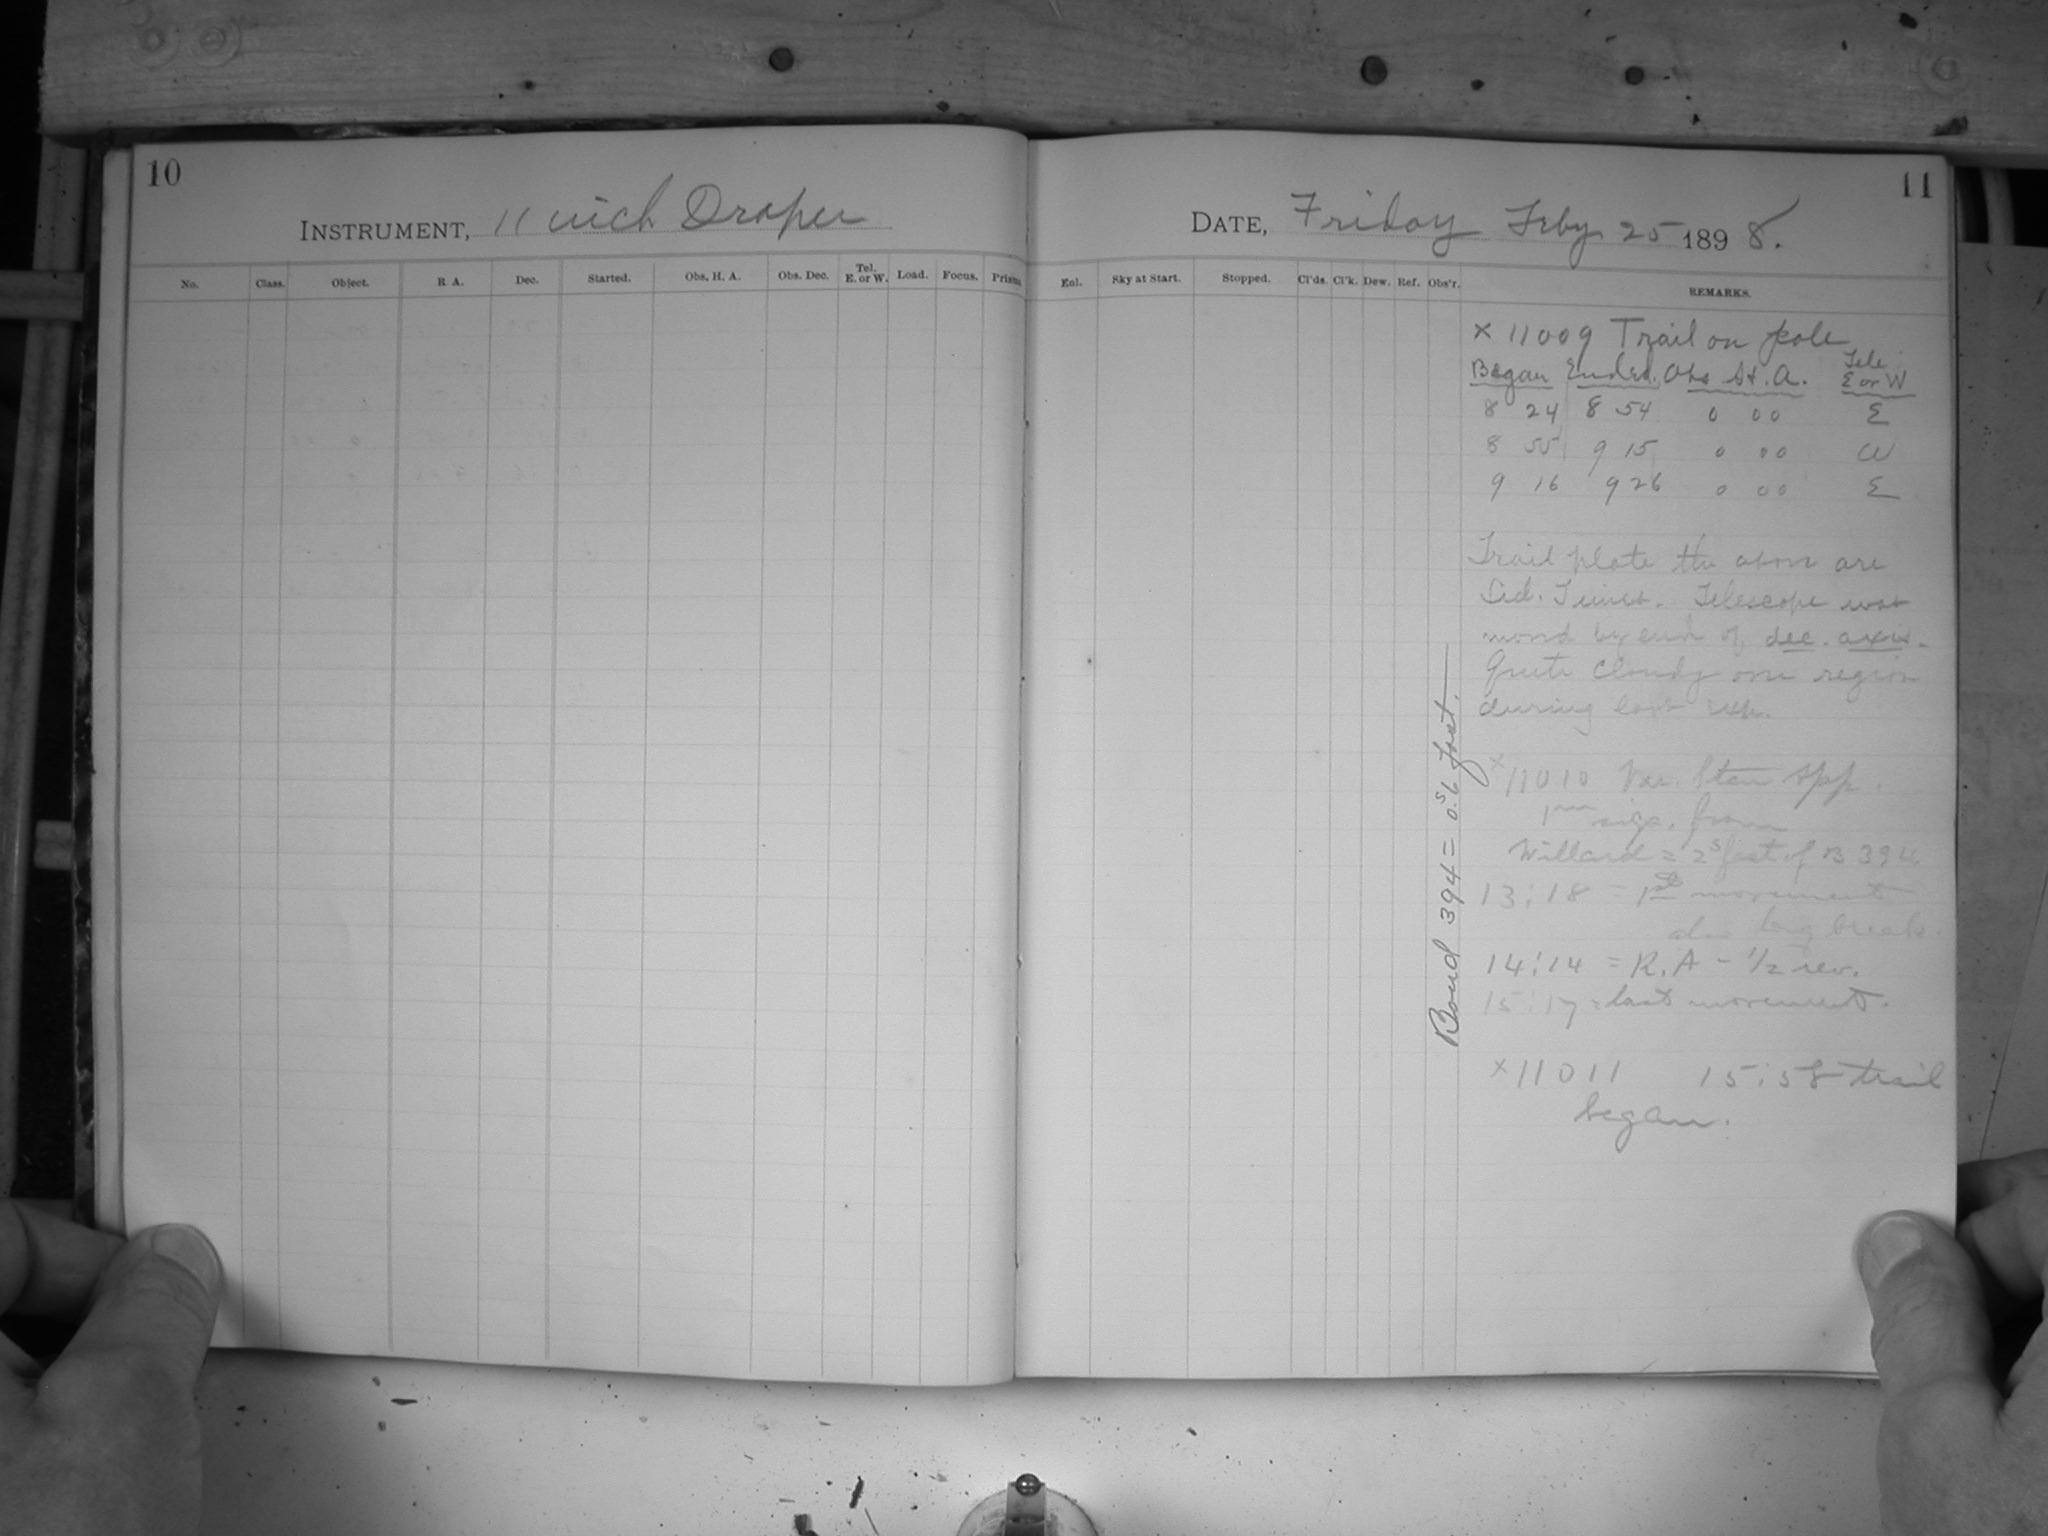 10
INSTRUMENT, 11 inch Draper
No. Class. Object. R A. Dec. Started. Obs. H. A. Obs. Dec. Tel. E. or W. Load. Focus. Prisms
11
DATE, Friday Feby 25 1898.
Enl. Sky at Start. Stopped. Cl'ds. Cl'k. Dew. Ref. Obs'r. REMARKS.
x 11009 Trail on pole
Began Ended. Obs H. A. Tele E or W
8 24 8 54 0 00 E
8 55 9 15 0 00 W
9 16 9 26 0 00 E
Trail plate the above are
Sid. Times. Telescope was
moved by end of dec. axis.
Quite cloudy over region
during last exp.
x 11010
from
Willard = 2s fast of B 394
13:18 = 1st movement
also long break.
14:14 = R.A - 1/2 rev.
15:17 = last movement.
x 11011 15:58 trail
began.
Bond 394 = 0s.6 fast.